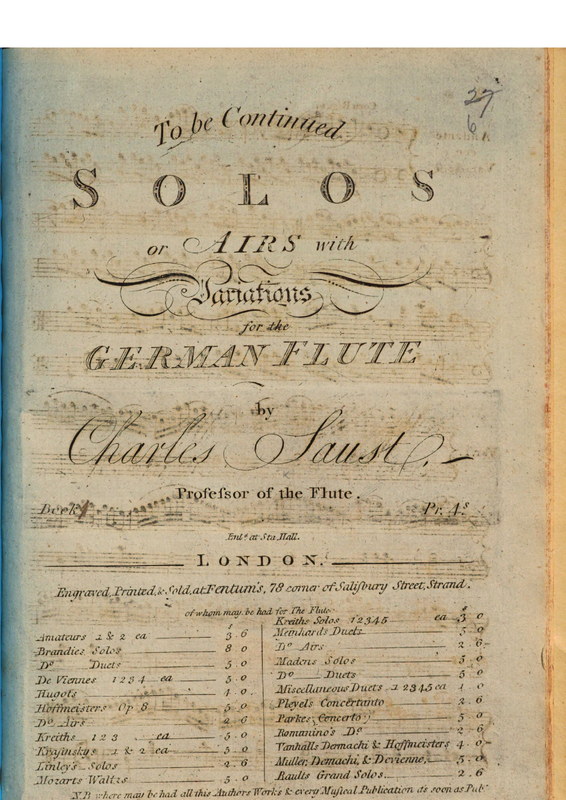 27
6
To be Continued
SOLOS
or AIRS with
Variations
for the
GERMAN FLUTE
by
Charles Saust.
Profeſsor of the Flute.
Book Pr. 4s
Entd. at Sta. Hall.
LONDON.
Engraved, Printed, & Sold, at Fentum's, 78 corner of Saliſbury Street, Strand.
of whom may be had for The Flute
Amateurs 1 & 2 ea 3 . 6
Brandies Solos 8 0
Do. Duets 5 . 0
De Viennes 1 2 3 4 ea 5 . 0
Hugots 4 . 0
Hoffmeisters Op 8 5 . 0
Do. Airs 2 . 6
Kreiths 1 2 3 ea 5 . 0
Kraſinskys 1 & 2 ea 5 . 0
Linley's Solos 2 . 6
Mozarts Waltzs 5 . 0
Kreiths Solos 1 2 3 4 5 ea 3 0
Meinhards Duets 5 . 0
Do. Airs 2 . 6
Madens Solos 5 . 0
Do. Duets 5 . 0
Miſcellaneous Duets 1 2 3 4 5 ea 1 0
Pleyels Concertanto 2 . 6
Parkes, Concerto 5 . 0
Romanino's Do. 2 . 6
Vanhalls Demachi & Hoffmeisters 4 . 0
Muller, Demachi, & Devienne, 5 . 0
Raults Grand Solos 2 . 6
N.B. where may be had all this Authors Works & every Muſical Publication as soon as Pubd.